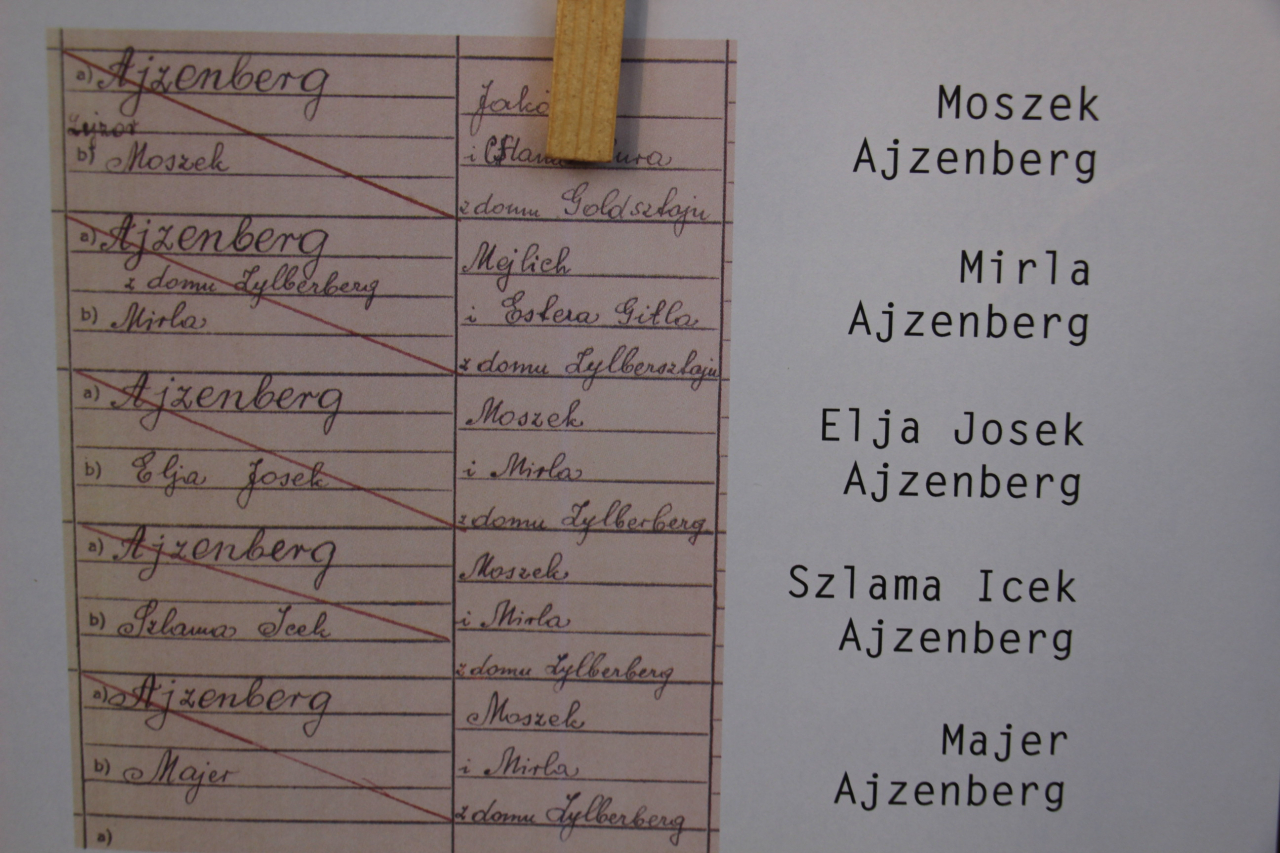 a) Ajzenberg
b) Moszek
Jakó
i
z domu Goldsztaju
a) Ajzenberg
z domu Zylberberg
b) Mirla
Mejlich
i Estera Gitla
z domu Zylbersztaju
a) Ajzenberg
b) Elja Josek
Moszek
i Mirla
z domu Zylberberg
a) Ajzenberg
b) Szlama Icek
Moszek
i Mirla
z domu Zylberberg
a) Ajzenberg
b) Majer
Moszek
i Mirla
z domu Zylberberg
a)
Moszek
Ajzenberg
Mirla
Ajzenberg
Elja Josek
Ajzenberg
Szlama Icek
Ajzenberg
Majer
Ajzenberg